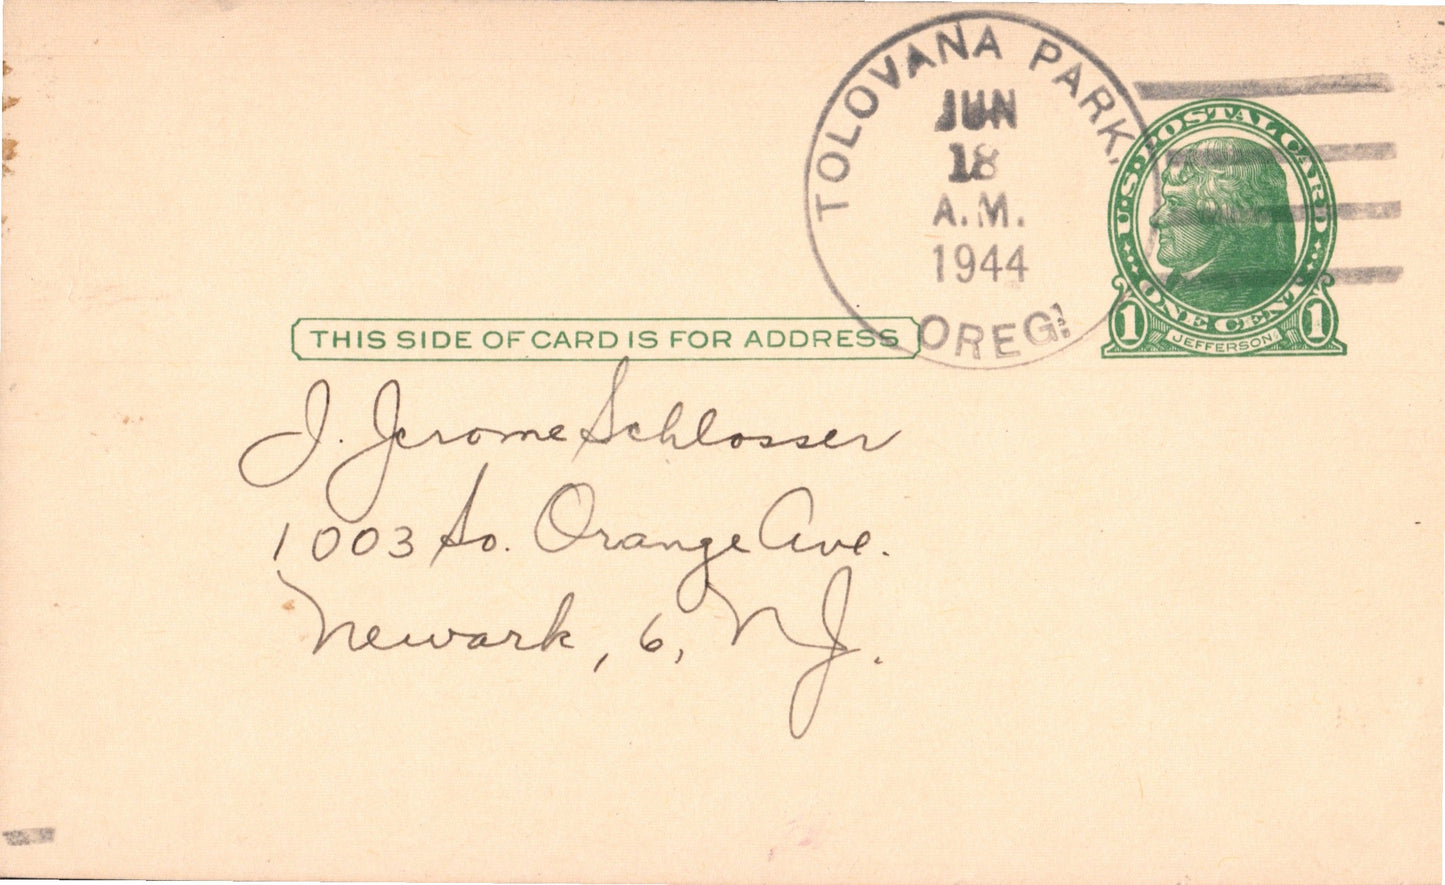 TOLOVANA PARK,
JUN
18
A.M.
1944
OREG.
U.S. POSTAL CARD
ONE CENT
1 JEFFERSON 1
THIS SIDE OF CARD IS FOR ADDRESS
J. Jerome Schlosser
1003 So. Orange Ave.
Newark, 6, NJ.